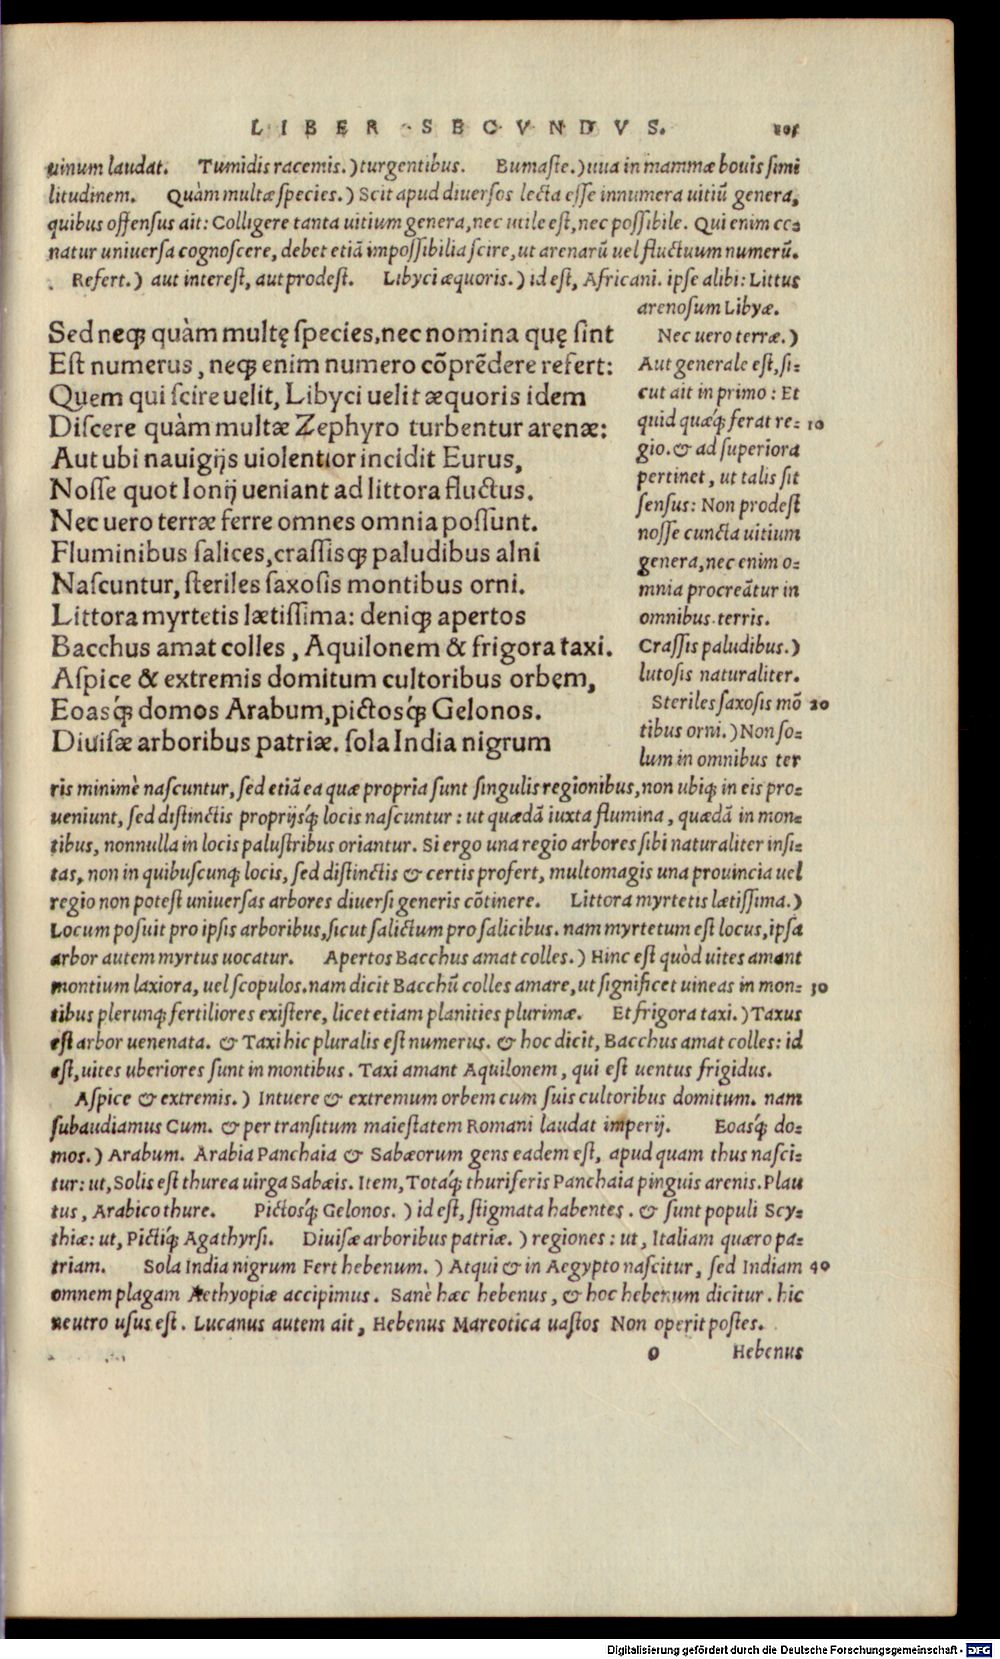 LIBER SECVNDVS. 105
uinum laudat. Tumidis racemis.) turgentibus. Bumaste.) uua in mammæ bouis simi
litudinem. Quàm multæ species.) Scit apud diuersos lecta esse innumera uitiũ genera,
quibus offensus ait: Colligere tanta uitium genera, nec utile est, nec possibile. Qui enim co-
natur uniuersa cognoscere, debet etiã impossibilia scire, ut arenarũ uel fluctuum numerũ.
Refert.) aut interest, aut prodest. Libyci æquoris.) id est, Africani. ipse alibi: Littus
arenosum Libyæ.
Sed neqꝫ quàm multę species, nec nomina quę sint
Est numerus, neqꝫ enim numero cõprẽdere refert:
Quem qui scire uelit, Libyci uelit æquoris idem
Discere quàm multæ Zephyro turbentur arenæ:
Aut ubi nauigijs uiolentior incidit Eurus,
Nosse quot Ionij ueniant ad littora fluctus.
Nec uero terræ ferre omnes omnia possunt.
Fluminibus salices, crassisqꝫ paludibus alni
Nascuntur, steriles saxosis montibus orni.
Littora myrtetis lætissima: deniqꝫ apertos
Bacchus amat colles, Aquilonem & frigora taxi.
Aspice & extremis domitum cultoribus orbem,
Eoasq́ꝫ domos Arabum, pictosq́ꝫ Gelonos.
Diuisæ arboribus patriæ. sola India nigrum
Nec uero terræ.)
Aut generale est, si-
cut ait in primo: Et
quid quæq́ꝫ ferat re- 10
gio. & ad superiora
pertinet, ut talis sit
sensus: Non prodest
nosse cuncta uitium
genera, nec enim o-
mnia procreãtur in
omnibus terris.
Crassis paludibus.)
lutosis naturaliter.
Steriles saxosis mõ 20
tibus orni.) Non so-
lum in omnibus ter
ris minimè nascuntur, sed etiã ea quæ propria sunt singulis regionibus, non ubiqꝫ in eis pro-
ueniunt, sed distinctis proprijsq́ꝫ locis nascuntur: ut quædã iuxta flumina, quædã in mon-
tibus, nonnulla in locis palustribus oriantur. Si ergo una regio arbores sibi naturaliter insi-
tas, non in quibuscunqꝫ locis, sed distinctis & certis profert, multomagis una prouincia uel
regio non potest uniuersas arbores diuersi generis cõtinere. Littora myrtetis lætissima.)
Locum posuit pro ipsis arboribus, sicut salictum pro salicibus. nam myrtetum est locus, ipsa
arbor autem myrtus uocatur. Apertos Bacchus amat colles.) Hinc est quòd uites amant
montium laxiora, uel scopulos. nam dicit Bacchũ colles amare, ut significet uineas in mon- 30
tibus plerunqꝫ fertiliores existere, licet etiam planities plurimæ. Et frigora taxi.) Taxus
est arbor uenenata. & Taxi hic pluralis est numerus. & hoc dicit, Bacchus amat colles: id
est, uites uberiores sunt in montibus. Taxi amant Aquilonem, qui est uentus frigidus.
Aspice & extremis.) Intuere & extremum orbem cum suis cultoribus domitum. nam
subaudiamus Cum. & per transitum maiestatem Romani laudat imperij. Eoasq́ꝫ do-
mos.) Arabum. Arabia Panchaia & Sabæorum gens eadem est, apud quam thus nasci-
tur: ut, Solis est thurea uirga Sabæis. Item, Totaq́ꝫ thuriferis Panchaia pinguis arenis. Plau
tus, Arabico thure. Pictosq́ꝫ Gelonos.) id est, stigmata habentes. & sunt populi Scy-
thiæ: ut, Pictiqꝫ Agathyrsi. Diuisæ arboribus patriæ.) regiones: ut, Italiam quæro pa-
triam. Sola India nigrum Fert hebenum.) Atqui & in Aegypto nascitur, sed Indiam 40
omnem plagam Aethyopiæ accipimus. Sanè hæc hebenus, & hoc hebenum dicitur. hic
neutro usus est. Lucanus autem ait, Hebenus Mareotica uastos Non operit postes.
o Hebenus
Digitalisierung gefördert durch die Deutsche Forschungsgemeinschaft - DFG